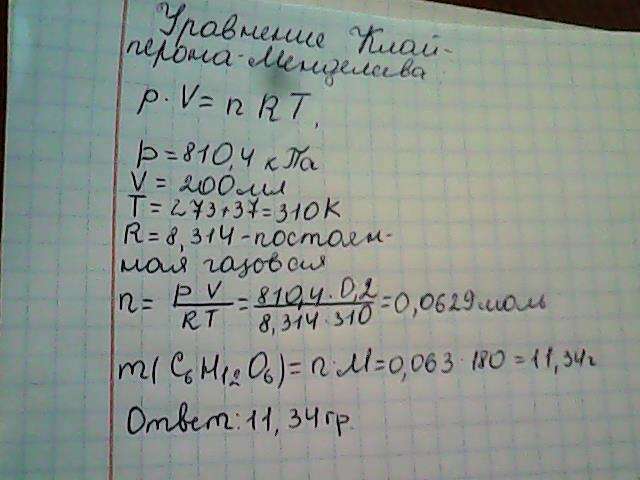 Уравнение Клай-
перона-Менделеева
p · V = n R T,
p = 810,4 кПа
V = 200мл
T = 273+37=310К
R = 8,314 - постоян-
ная газовая
n = p V / R T = 810,4 · 0,2 / 8,314 · 310 = 0,0629моль
m( C₆H₁₂O₆) = n · M = 0,063 · 180 = 11,34г
Ответ: 11, 34гр.